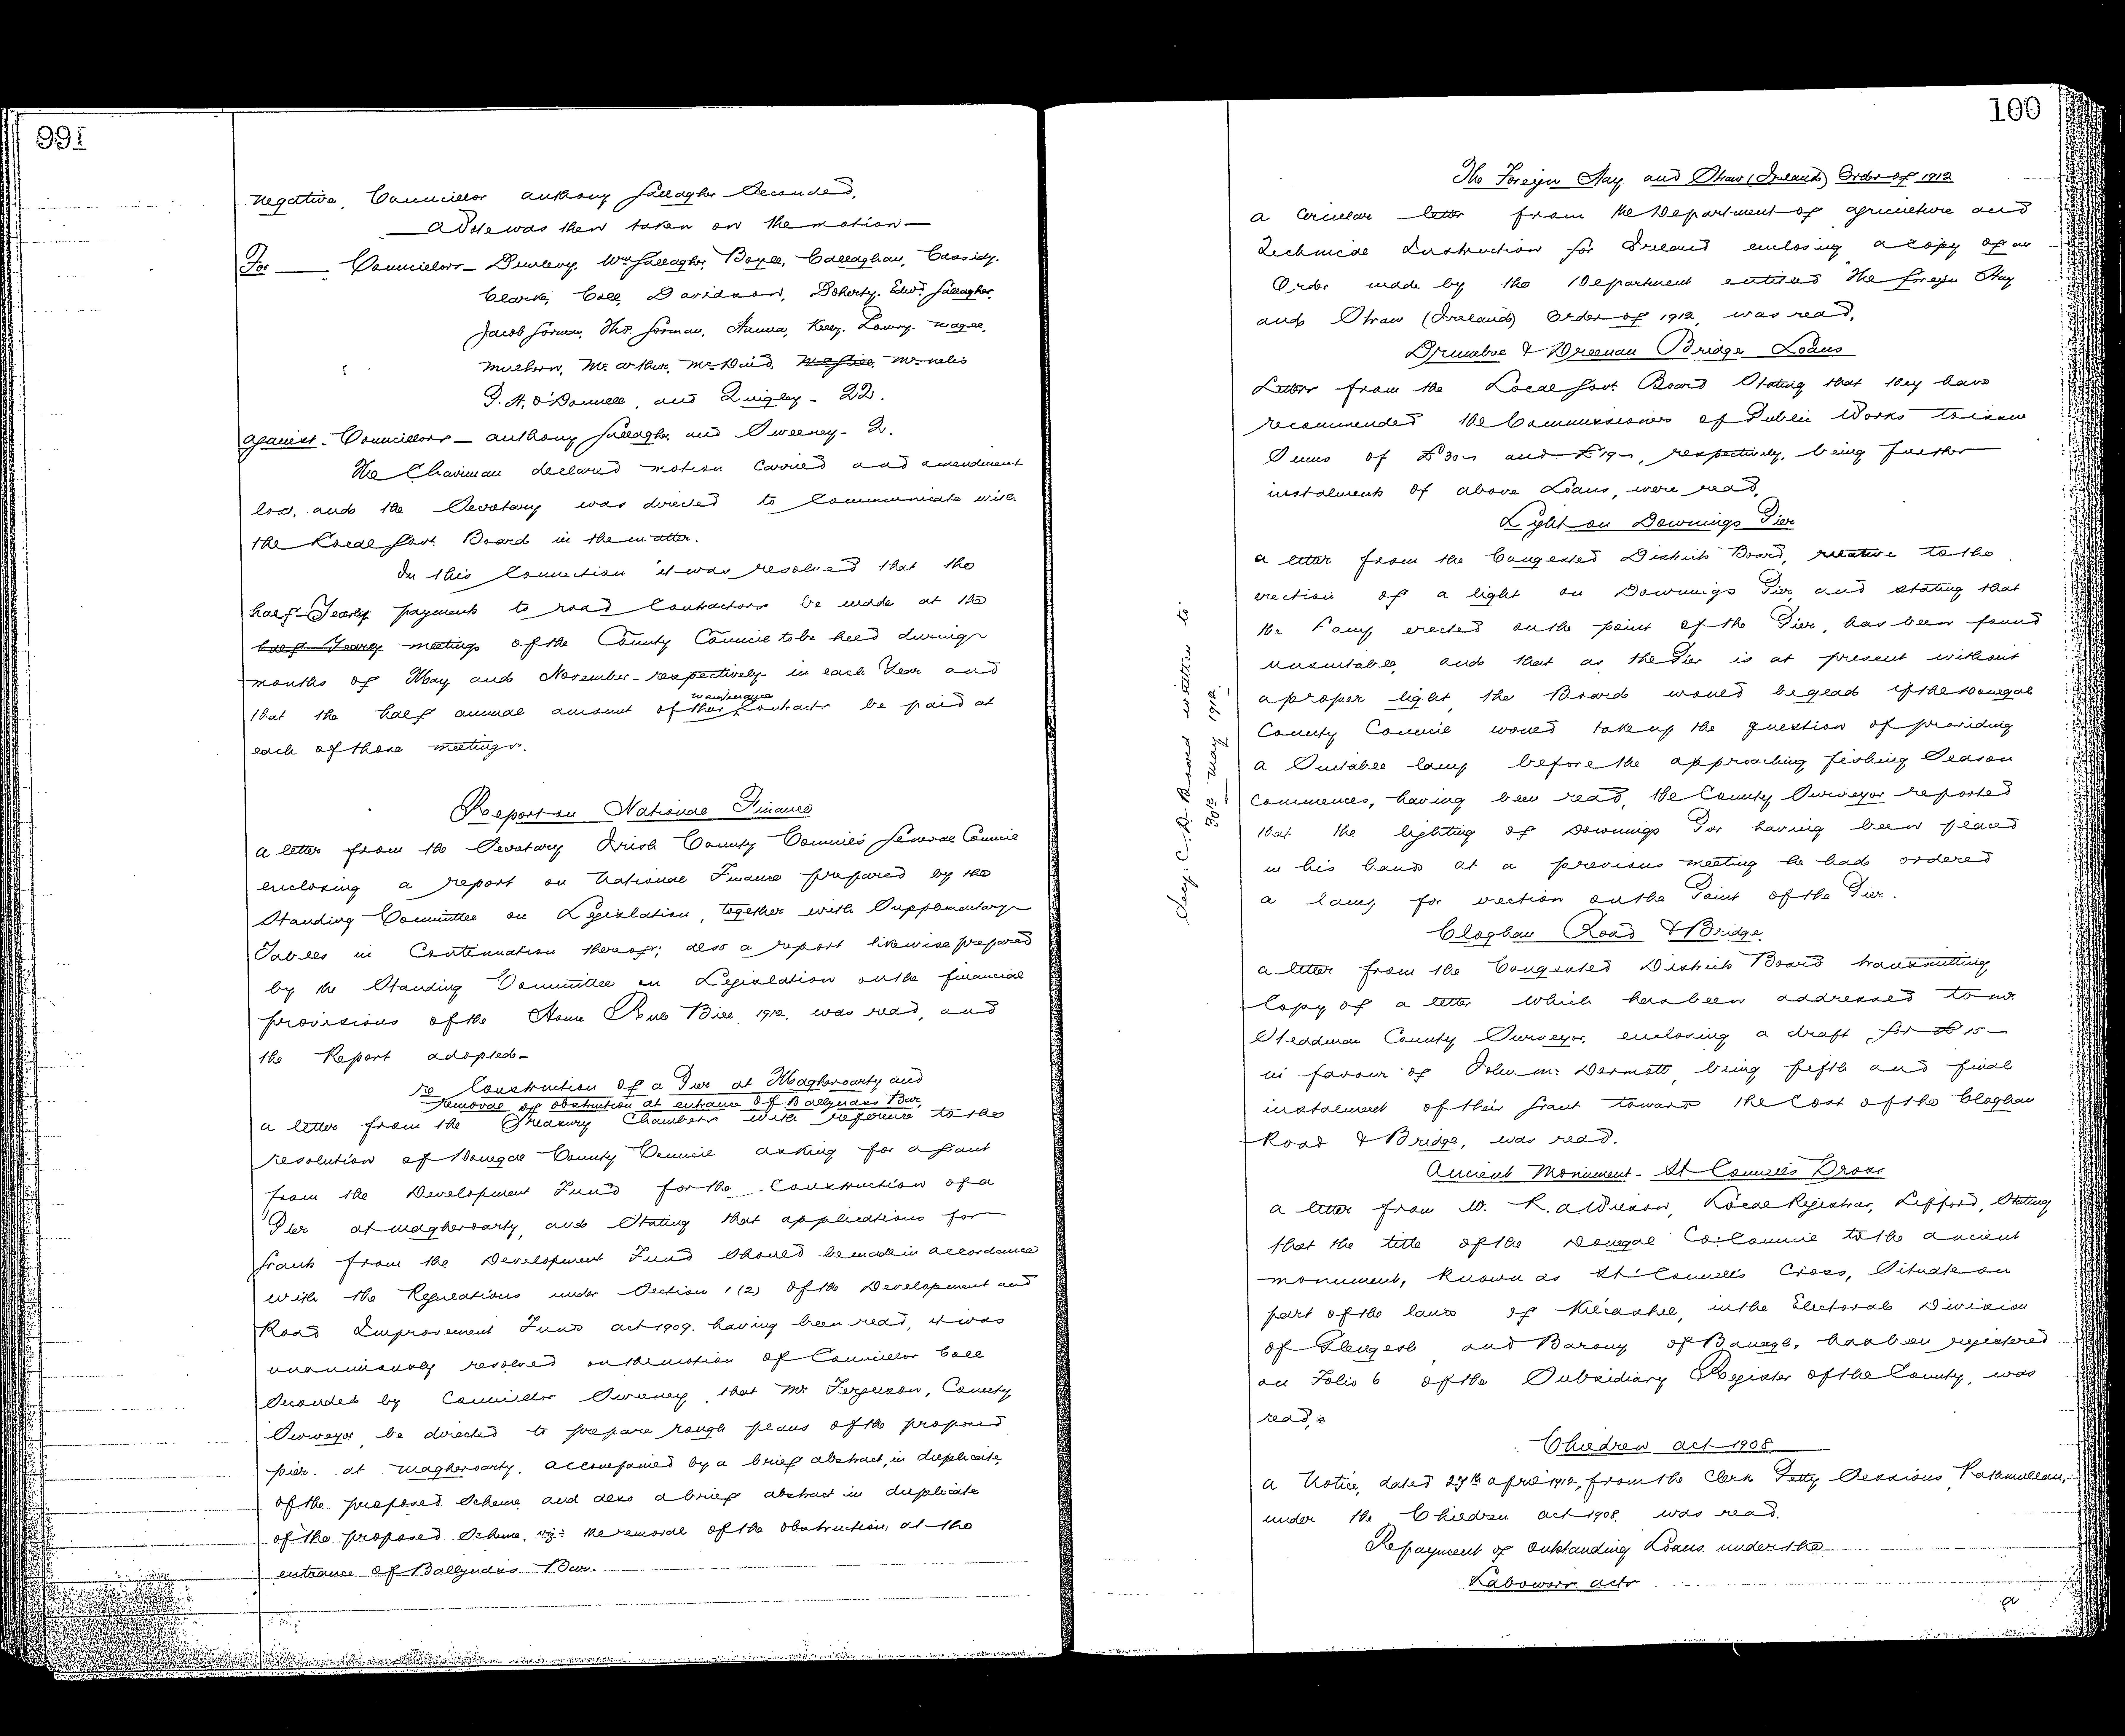 99
negative, Councillor Anthony Gallagher Seconded,
A Vote was then taken on the motion —
For — Councillors — Dunlevy, Wm Gallagher, Boyle, Callaghan, Cassidy,
Clarke, Coll, Davidson, Doherty, Edwd Gallagher,
Jacob Gorman, Thos. Gorman, Hanna, Kelly, Lowry, Magee,
McArthur, McDaid, McNelis
P. H. O'Donnell, and Quigley - 22.
Against - Councillors — Anthony Gallagher and Sweeney - 2.
The Chairman declared motion carried and amendment
lost, and the Secretary was directed to communicate with
the Local Govt. Board in the matter.
In this connection it was resolved that the
half-Yearly payments to road Contractors be made at the
half Yearly meetings of the County Council to be held during
months of May and November - respectively - in each Year and
that the half annual amount of their maintenance Contracts be paid at
each of those meetings.
Report on National Finance
A letter from the Secretary Irish County Councils General Council
enclosing a report on National Finance prepared by the
Standing Committee on Legislation, together with Supplementary
Tables in Continuation thereof; also a report likewise prepared
by the Standing Committee on Legislation on the financial
provisions of the Home Rule Bill, 1912, was read, and
the Report adopted -
re Construction of a Pier at Magheroarty and
removal of obstruction at entrance of Ballyness Bar,
A letter from the Treasury Chambers with reference to the
resolution of Donegal County Council asking for a Grant
from the Development Fund for the Construction of a
Pier at Magheroarty, and Stating that applications for
Grants from the Development Fund should be made in accordance
with the Regulations under Section 1 (2) of the Development and
Road Improvement Funds Act 1909. having been read, it was
unanimously resolved on the motion of Councillor Coll
Seconded by Councillor Sweeney, that Mr Ferguson, County
Surveyor, be directed to prepare rough plans of the proposed
pier at Magheroarty, accompanied by a brief abstract, in duplicate,
of the proposed Scheme and also a brief abstract in duplicate
of the proposed Scheme, viz: the removal of the obstruction at the
entrance of Ballyness Bar.
100
The Foreign Hay and Straw (Ireland) Order of 1912
A Circular letter from the Department of Agriculture and
Technical Instruction for Ireland enclosing a copy of an
Order made by the Department entitled "The Foreign Hay
and Straw (Ireland) Order of 1912, was read,
Drumboe & Dreenan Bridge Loans
Letters from the Local Govt. Board Stating that they have
recommended the Commissioners of Public Works to issue
Sums of £30 - and £19 -, respectively, being further
instalments of above Loans, were read,
Light on Downings Pier
A letter from the Congested Districts Board, relative to the
erection of a light on Downings Pier, and stating that
the Lamp erected on the point of the Pier, has been found
unsuitable, and that as the Pier is at present without
a proper light, the Board would be glad if the Donegal
County Council would take up the question of providing
a Suitable lamp before the approaching fishing Season
commences, having been read, the County Surveyor reported
that the lighting of Downings Pier having been placed
in his hands at a previous meeting he had ordered
a lamp for erection on the Point of the Pier.
Secy: C. D. Board written to
30th May 1912.
Cloghan Road & Bridge
A letter from the Congested Districts Board transmitting
Copy of a letter which has been addressed to Mr.
Steadman County Surveyor, enclosing a draft for £15 -
in favour of John McDermott, being fifth and final
instalment of their Grant towards the Cost of the Cloghan
Road & Bridge, was read.
Ancient Monument - St Connell's Cross
A letter from W. R. A Wilson, Local Registrar, Lifford, Stating
that the title of the Donegal Co: Council to the ancient
monument, known as St Connell's Cross, Situate on
part of the lands of Kilcashel, in the Electoral Division
of Glengesh and Barony of Banagh, has been registered
on Folio 6 of the Subsidiary Register of the County, was
read,
Children Act 1908
A Notice, dated 27th April 1912, from the Clerk Petty Sessions, Rathmullan,
under the Children Act 1908, was read.
Repayment of Outstanding Loans under the
Labourers Acts
A